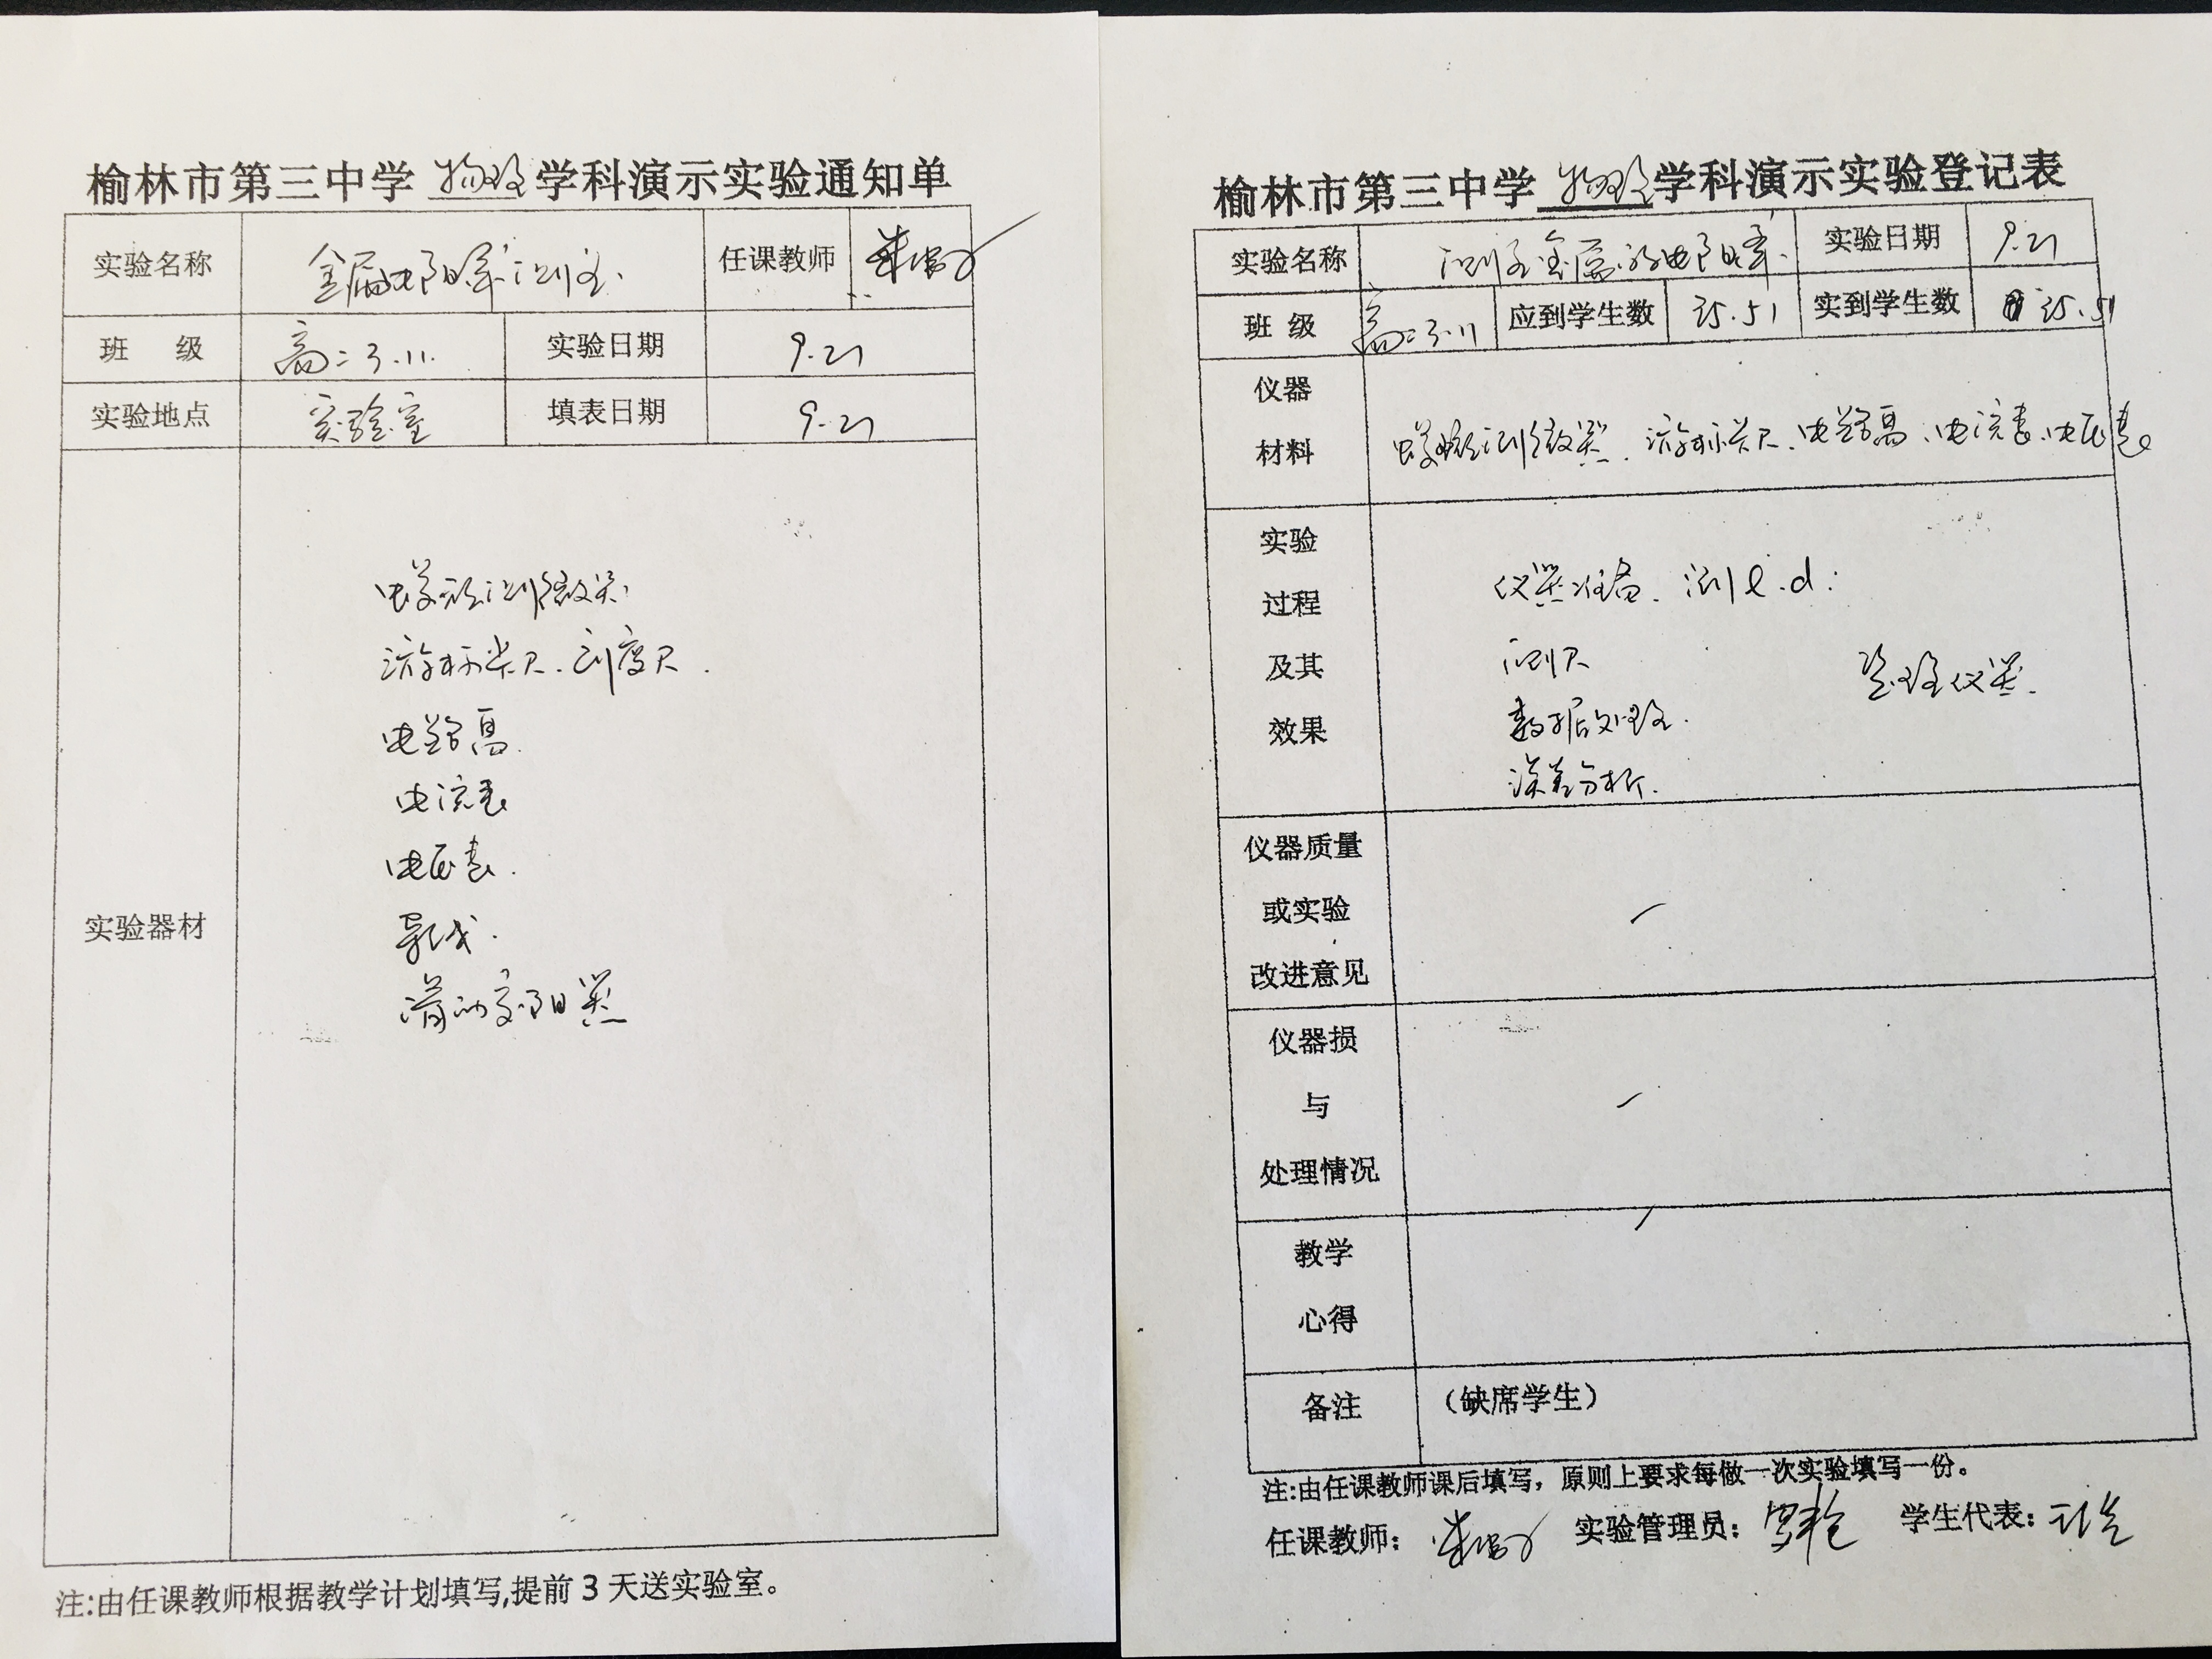 榆林市第三中学 物理 学科演示实验通知单
实验名称 金属电阻率测定. 任课教师
班 级 高二3.11. 实验日期 9.21
实验地点 实验室 填表日期 9.21
实验器材
螺旋测微器.
游标卡尺.刻度尺.
电学信禹.
电流表
电压表.
导线.
滑动变阻器
注:由任课教师根据教学计划填写,提前3天送实验室。
榆林市第三中学 物理 学科演示实验登记表
实验名称 测定金属的电阻率. 实验日期 9.21
班 级 高二3.11 应到学生数 35.51 实到学生数 35.51
仪器
材料
螺旋测微器.游标卡尺.电流表.电压表
实验
过程
及其
效果
仪器准备.测l.d.
测R
整理仪器.
数据处理.
误差分析.
仪器质量
或实验
改进意见
仪器损
与
处理情况
教学
心得
备注 (缺席学生)
注:由任课教师课后填写，原则上要求每做一次实验填写一份。
任课教师: 实验管理员: 学生代表: